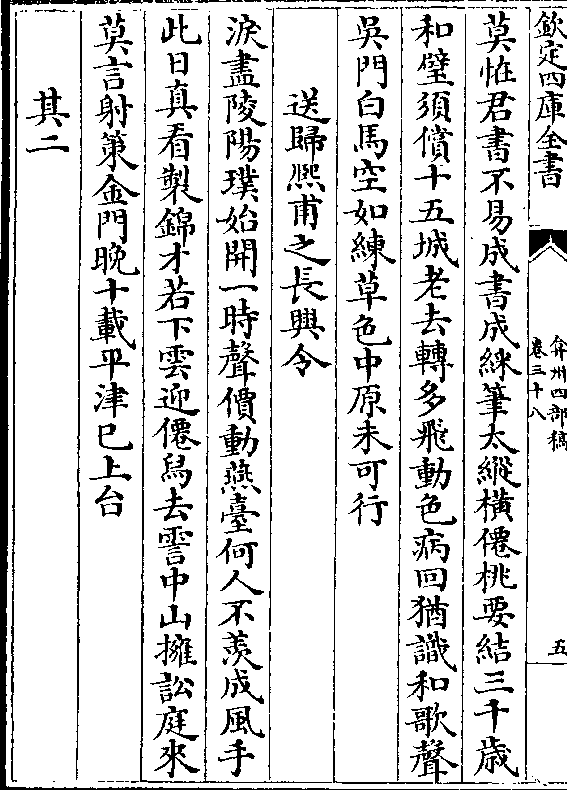 欽定四庫全書
弇州四部稿
卷三十八
五
莫恠君書不易成書成綵筆太縱橫僊桃要結三千歳
和璧須償十五城老去轉多飛動色病回猶識和歌聲
吳門白馬空如練草色中原未可行
送歸熈甫之長興令
淚盡陵陽璞始開一時聲價動燕臺何人不羨成風手
此日真看製錦才若下雲迎僊舄去霅中山擁訟庭來
莫言射策金門晚十載平津已上台
其二